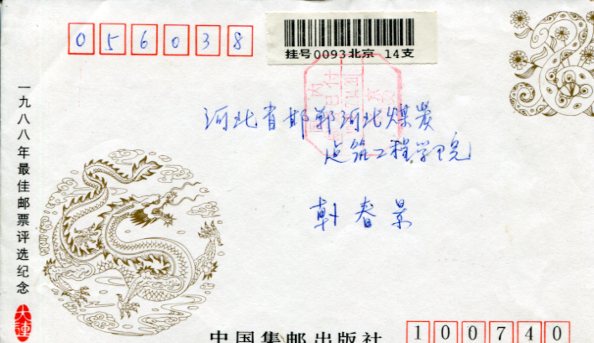 056038
挂号0093北京 14支
一九八八年最佳邮票评选纪念
大连
河北省邯郸河北煤炭
建筑工程学院
韩春景
中国集邮出版社
100740